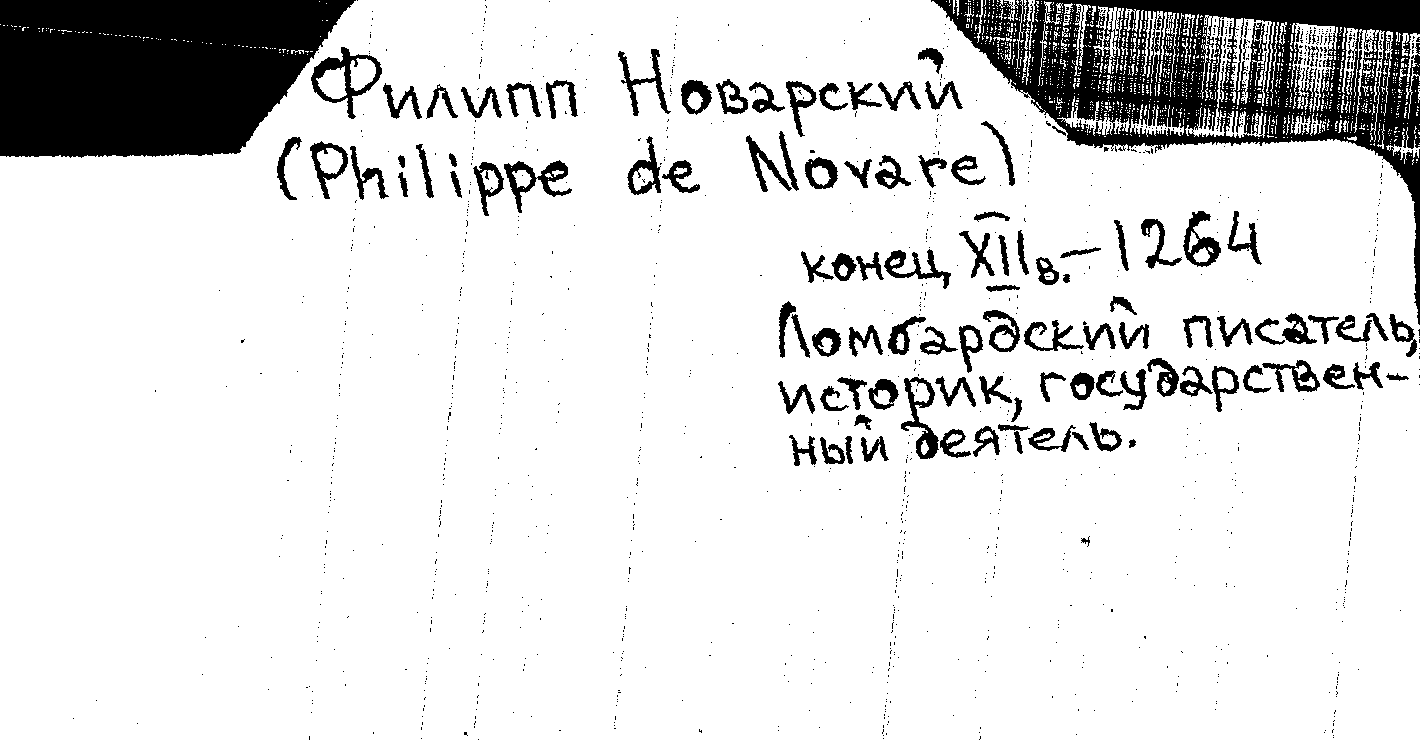 Филипп Новарский
(Philippe de Novare)
конец XII в. – 1264
Ломбардский писатель,
историк, государствен-
ный деятель.